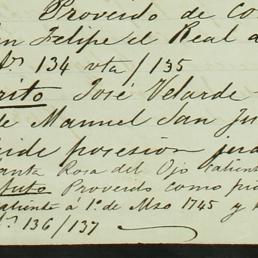 Proveido de co
n Felipe el Real d
Nº. 134 vta/135
rito José Velarde
de Manuel San Ju
ide posesion jud
anta Rosa del Ojo Caliente
Auto Proveido como pi
aliente á 1º. de Mzo 1745 y
Nº. 136/137